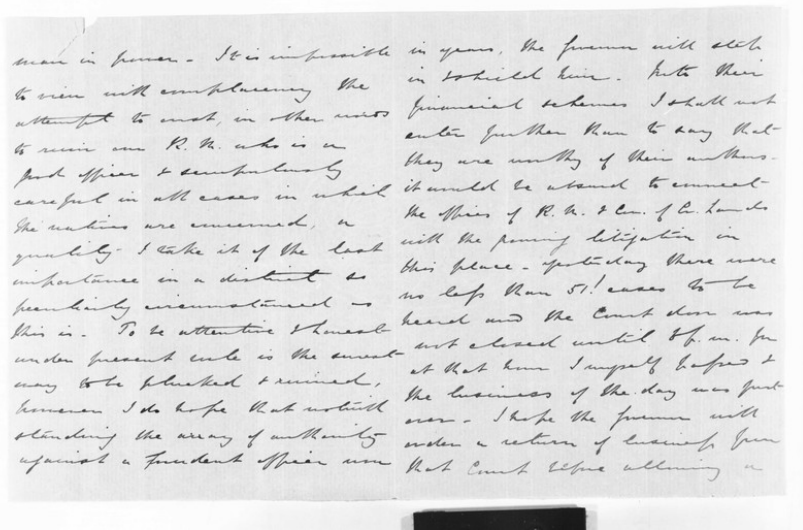 man in power - It is impossible
to view with complacency the
attempt to oust, in other words
to ruin our R. M. who is a
good officer & scrupulously
careful in all cases in which
the natives are concerned, a
quality I take it of the last
importance in a district so
peculiarly circumstanced as
this is. To be attentive & honest
under present rule is the surest
way to be plucked & ruined,
however I do hope that notwith
standing the array of authority
against a prudent officer now
in years, the Governor will step
in & shield him. Into their
financial schemes I shall not
enter further than to say that
they are worthy of their authors -
it would be absurd to connect
the offices of R. M. & Com. of Cr. Lands
with the growing litigation in
this place - yesterday there were
no less than 51! cases to be
heard and the Court door was
not closed until 8 p. m. for
at that hour I myself passed &
the business of the day was just
over - I hope the Governor will
order a return of business from
that Court before allowing a